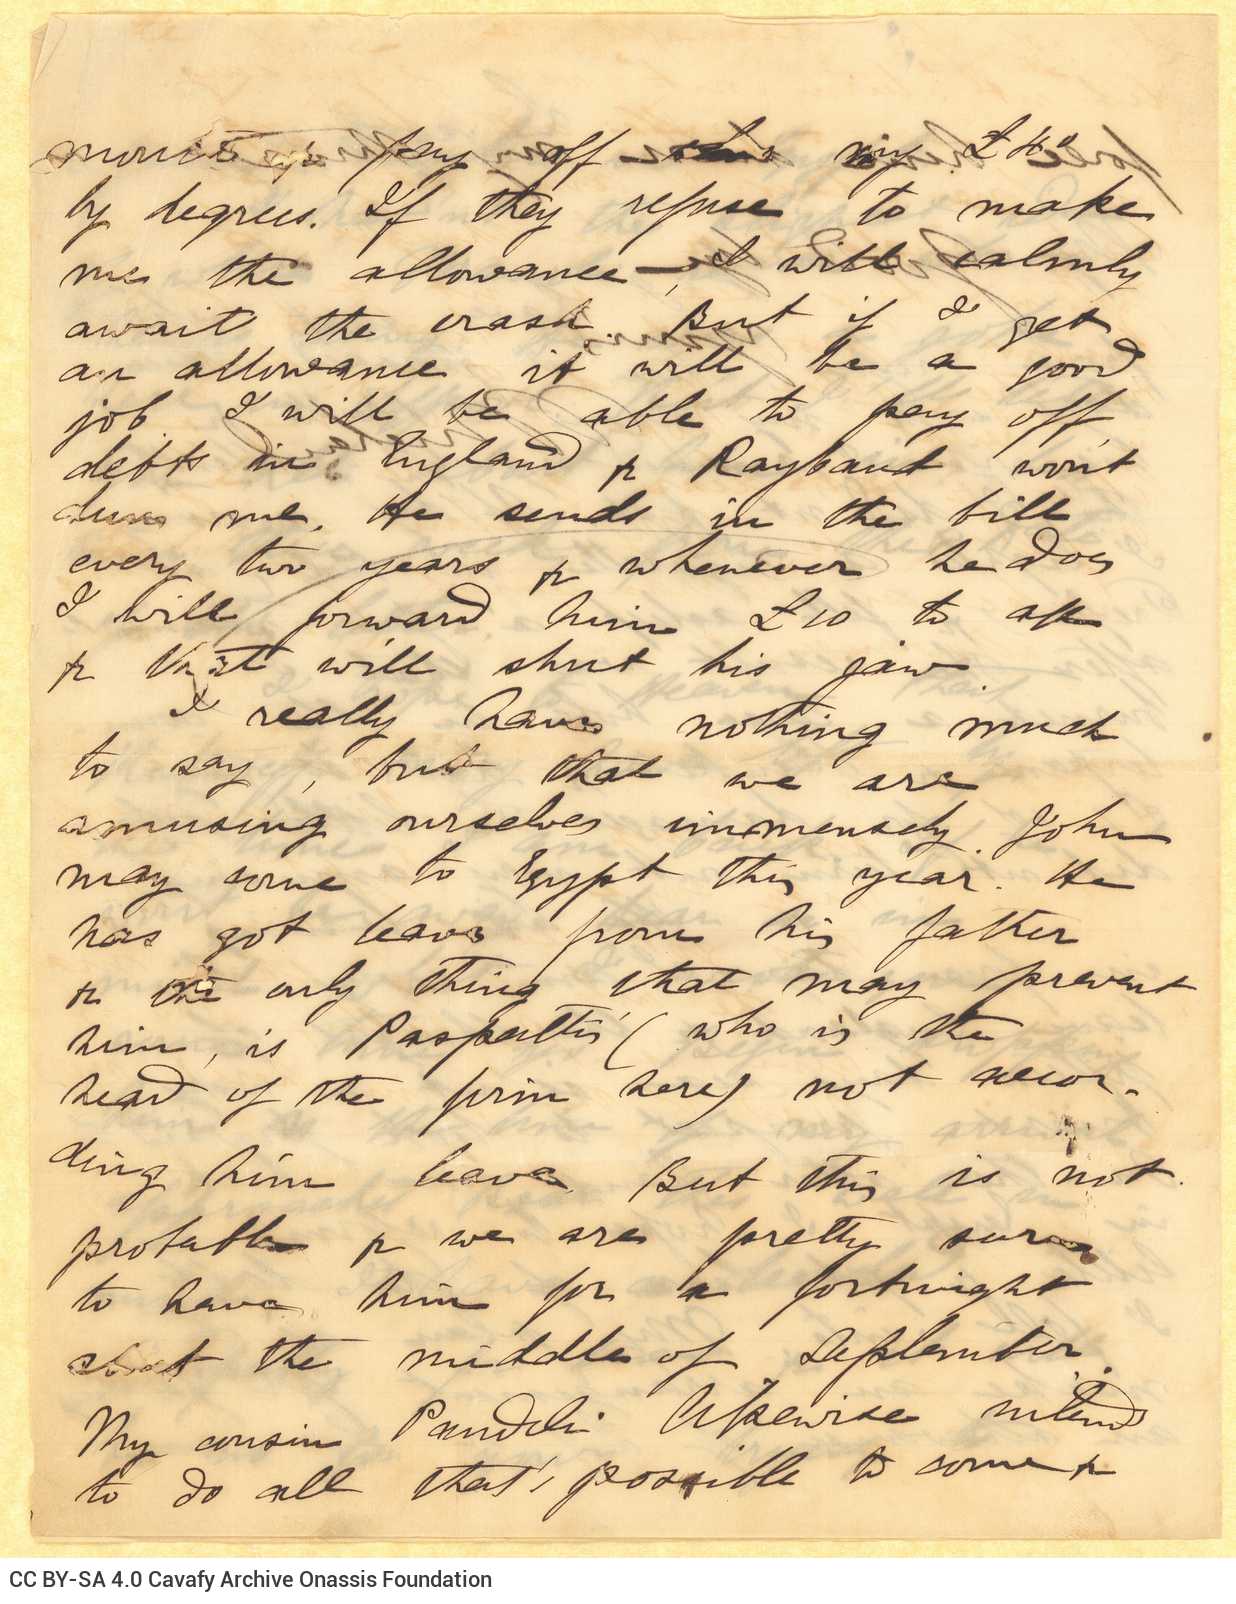 month & pay off my £40
by degrees. If they refuse to make
me the allowance—, I will calmly
await the crash. But if I get
an allowance it will be a good
job. I will be able to pay off
debts in England & Raybaud won't
dun me. He sends in the bill
every two years & whenever he does
I will forward him £10 to a/c
& that will shut his jaw.
I really have nothing much
to say, but that we are
amusing ourselves immensely. John
may come to Egypt this year. He
has got leave from his father
& the only thing that may prevent
him, is Paspatti's (who is the
head of the firm here) not accor-
ding him leave. But this is not
probable & we are pretty sure
to have him for a fortnight
about the middle of September.
My cousin Pandeli likewise intends
to do all that's possible to come &
CC BY-SA 4.0 Cavafy Archive Onassis Foundation